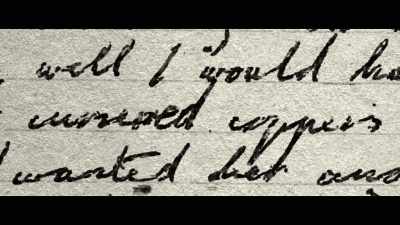 well I would ha
copper's
wanted her and